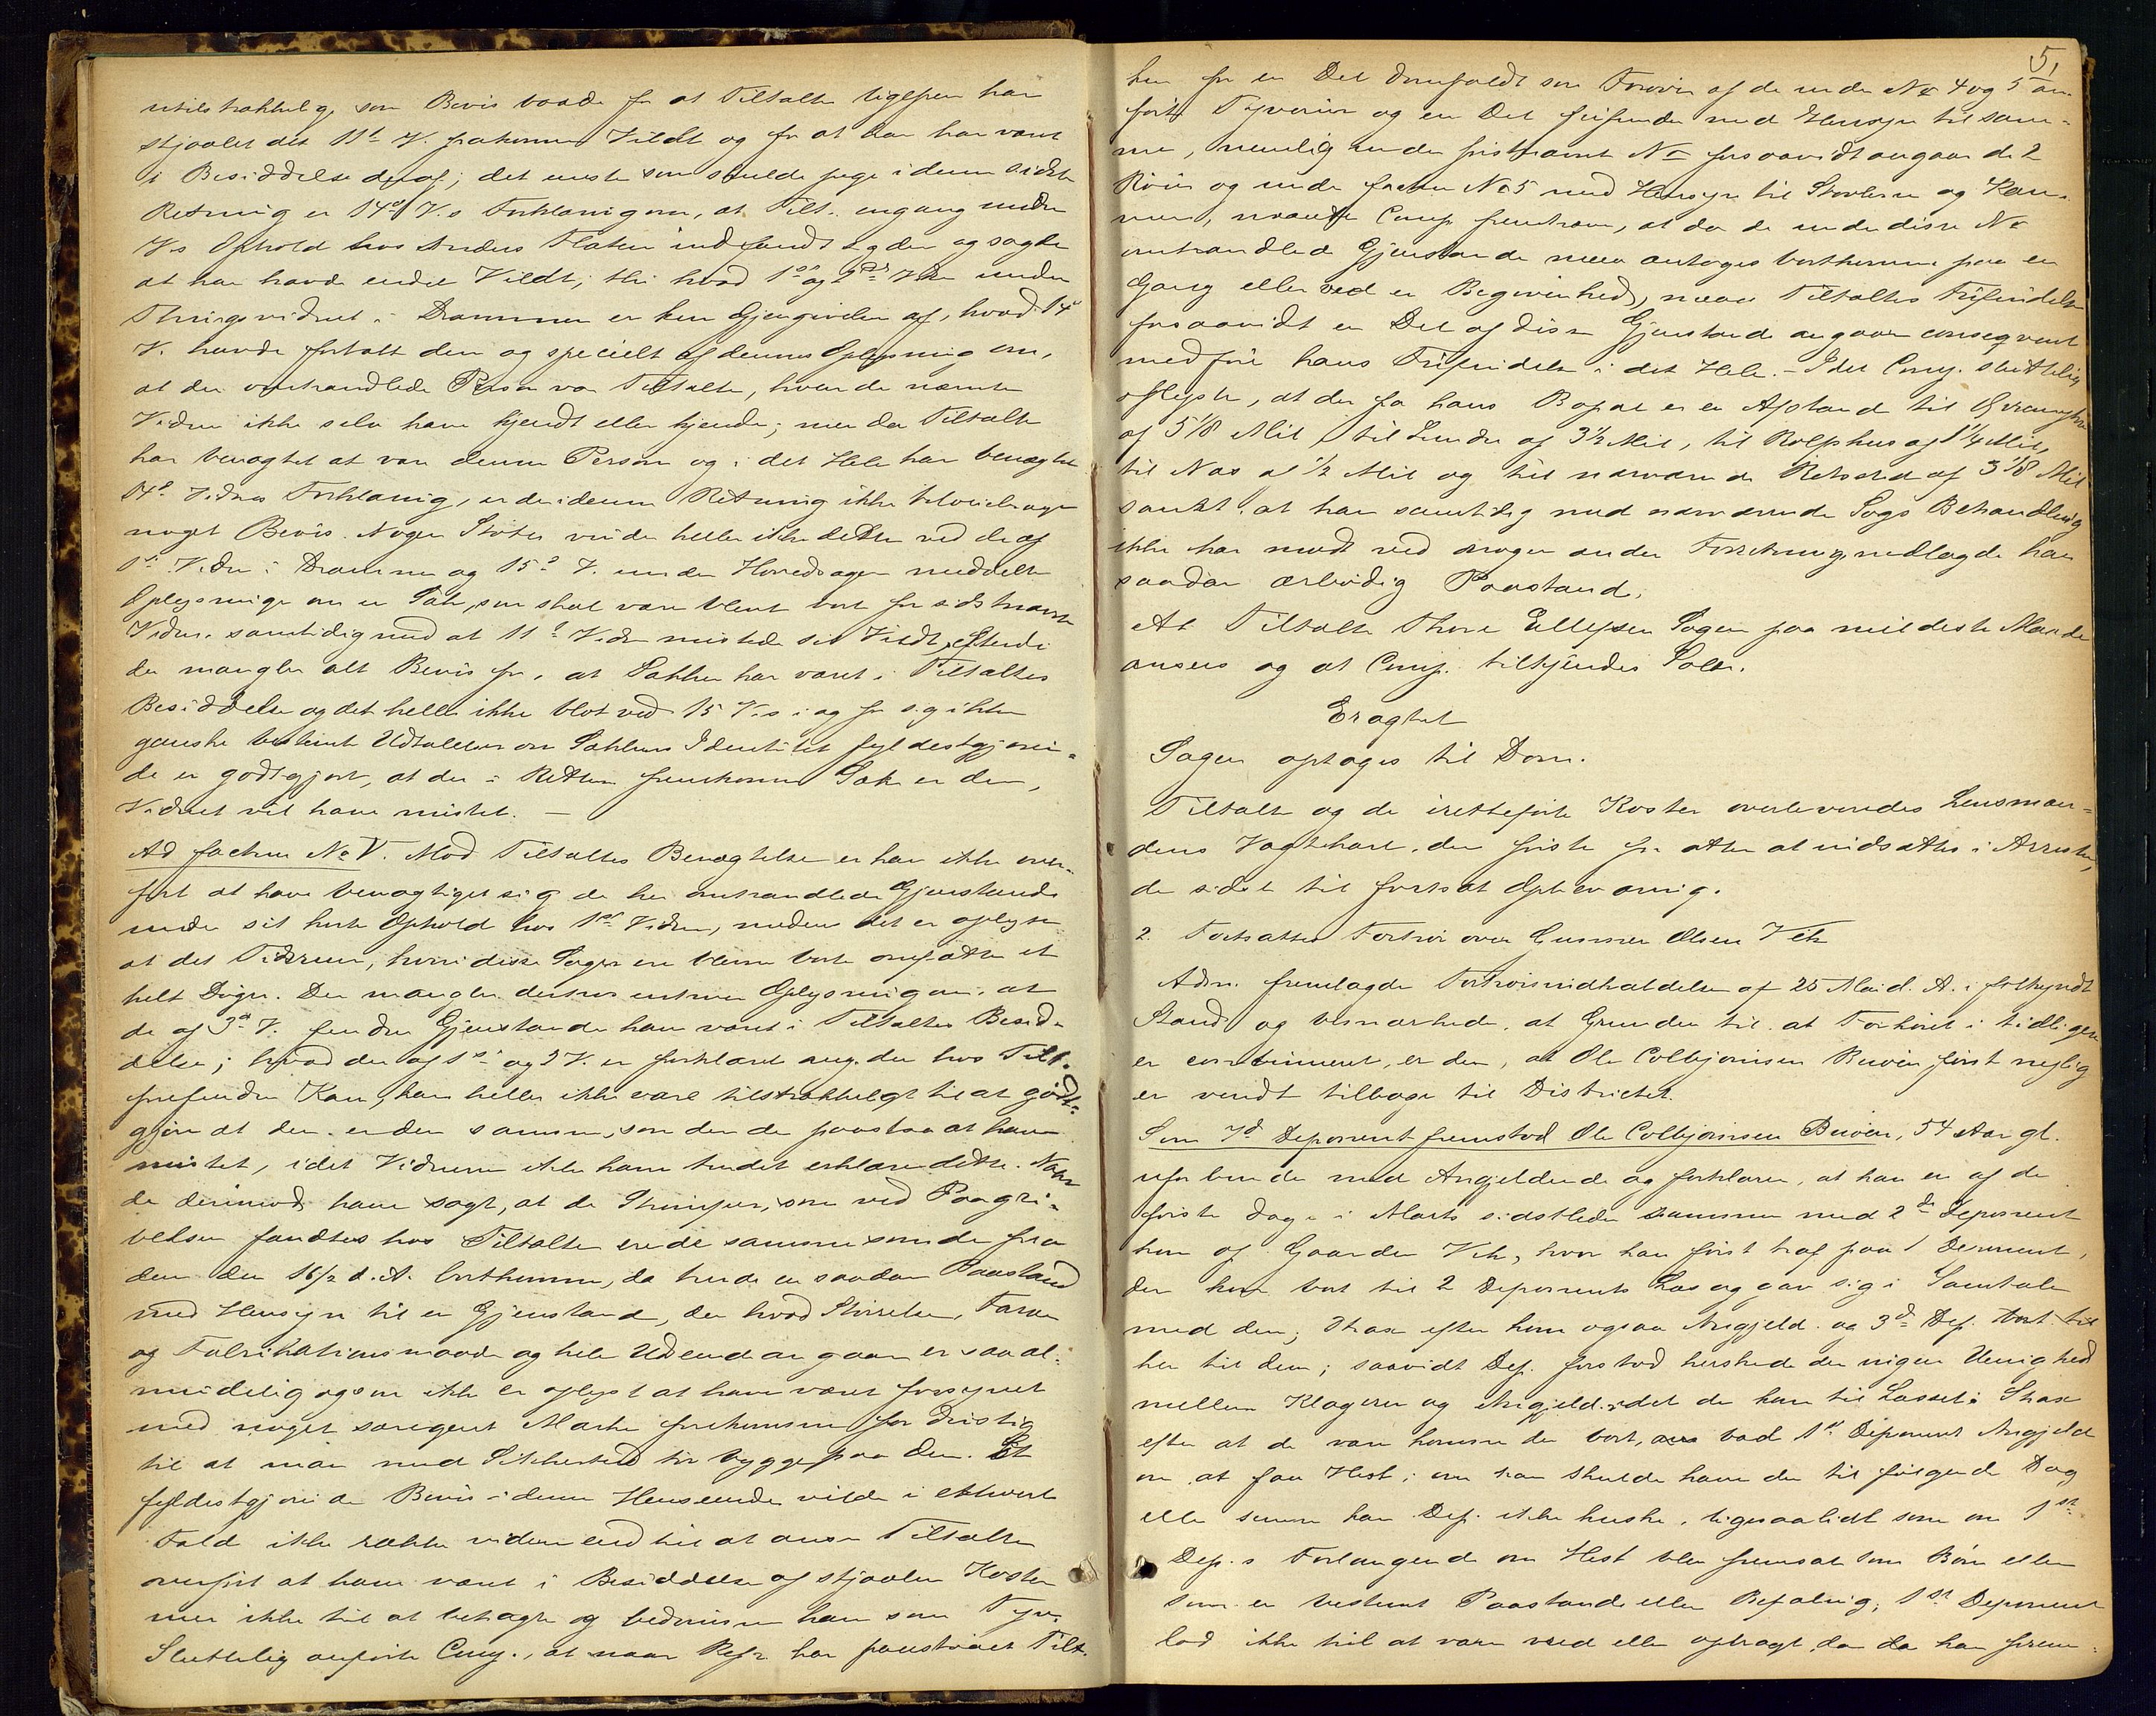 utilstrækkelig som Bevis baade for at Tiltalte ligefrem har
stjaalet det 11te V. frakomne Vildt og for at han har været
i Besiddelse deraf; det eneste som skulde pege i denne sidste
Retning er 14de V.s Forklaring om, at Tilt. engang under
V.s Ophold hos Anders Flaten indfandt sig der og sagde
at han havde endel Vildt; thi hvad 1ste og 2det Vidne under
Thingsvidnet i Drammen er kun Gjengivelse af, hvad 14de
V. havde fortalt dem og specielt af dennes Oplysning om,
at den omhandlede Person var Tiltalte, hvem de nævnte
Vidner ikke selv have kjendt eller kjender; men da Tiltalte
har benægtet at være denne Person og i det Hele har benægtet
14de Vidnes Forklaring, er der i denne Retning ikke tilveiebragt
noget Bevis. Nogen Støtte vinder heller ikke dette ved de af
1ste Vidne i Drammen og 15de V. under Hovedsagen meddelte
Oplysninger om en Sæk, som skal være blevet borte for sidstnævnte
Vidne samtidig med at 11te Vidne mistede sit Vildt, eftersom
der mangler alt Bevis for, at Sækken har været i Tiltaltes
Besiddelse og det heller ikke blot ved 15 V.s i og for sig ikke
ganske bestemte Udtalelser om Sækkens Identitet fyldestgjøren-
de er godtgjort, at den i Retten fremkomne Sæk er den,
Vidnet vil have mistet. —
Ad factum No V. Mod Tiltaltes Benægtelse er han ikke over-
ført at have bemægtiget sig de her omhandlede Gjenstande
under sit korte Ophold hos 1ste Vidne, medens det er oplyst
at det Tidsrum, hvori disse Sager ere blevne borte omfatter et
helt Døgn. Der mangler desuden enhver Oplysning om, at
de af 3de V. fundne Gjenstande have været i Tiltaltes Besid-
delse; hvad der af 1ste og 2 V. er forklaret ang. den hos Tilt.
forefundne Kam, kan heller ikke være tilstrækkeligt til at godt-
gjøre at den er den samme, som den de paastaa at have
mistet, idet Vidnerne ikke have turdet erklære dette. Naar
de derimod have sagt, at de Strømper, som ved Paagri-
belsen fandtes hos Tiltalte ere de samme som de fra
dem den 16/2 d. A. bortkomne, da turde en saadan Paastand
med Hensyn til en Gjenstand, der hvad Størrelse, Farve
og Fabrikationsmaade og hele Udseende angaar er saa al-
mindelig og som ikke er oplyst at have været forsynet
med noget særegent Mærke forekomme for dristig
til at man med Sikkerhed tør bygge paa den. Et
fyldestgjørende Bevis i denne Henseende vilde i ethvert
Fald ikke række videre end til at anse Tiltalte
overført at have været i Besiddelse af stjaalne Koster
men ikke til at betragte og bedømme ham som Tyv.
Sluttelig anførte Comp., at naar Refr. har paastaaet Tilt.
51
her for en Del domfældt som Forøver af de under No 4 og 5 an-
førte Tyverier og en Del frifunden med Hensyn til sam-
me, nemlig under førstnævnte No forsaavidt angaar de 2
Røier og under factum No 5 med Hensyn til Støvlerne og Kam-
men, maatte Comp. fremhæve, at da de under disse No
omhandlede Gjenstande maa antages bortkomne paa en
Gang eller ved en Begivenhed, maa Tiltaltes Frifindelse
forsaavidt en Del af disse Gjenstande angaar conseqvent
medføre hans Frifindelse i det Hele. – Idet Comp. sluttelig
oplyste, at der fra hans Bopæl er en Afstand til
af 5 1/8 Miil til Lunde af 3 1/2 Mil, til Rolfshus af 1 1/4 Mil,
til Næs af 1/2 Mil og til nærværende Retssted af 3 1/8 Mil
samt, at han samtidig med nærværende Sags Behandling
ikke har mødt ved nogen anden Forretning nedlagde han
saadan ærbødig Paastand:
At Tiltalte Thore Ellefsen Sagen paa mildeste Maade
ansees og at Comp. tilkjendes Salær.
Eragtet
Sagen optages til Dom.
Tiltalte og de iretteførte Koster overleveredes Lensman-
dens Vagthavd. den første for atter at indsættes i Arresten,
de sidste til fortsat Opbevaring.
2. Fortsattes Forhør over Gunner Olsen Vek
Adm. fremlagde Forhørsindkaldelse af 25 Mai d. A. i forkyndt
Stand og bemærkede, at Grunden til at Forhøret i tidligere
er continueret, er den, at Ole Colbjørnsen Bevøen først nylig
er vendt tilbage til Districtet.
Som 7de Deponent fremstod Ole Colbjørnsen Bevøen, 54 Aar gl.
uforbunden med Angjeldende og forklarer, at han en af de
første Dage i Marts sidstleden sammen med 2den Deponent
kom af Gaarden Vek, hvor han først traf paa 1 Deponent,
der kom bort til 2 Deponents Læs og gav sig i Samtale
med dem; Strax efter kom ogsaa Angjeld. og 3de Dep. bort til
hen til dem; saavidt Dep. forstod herskede der ingen Uenighed
mellem Klageren og Angjeld. idet de kom til Læsset. Strax
efter at de vare komne der bort, bad 1ste Deponent Angjeld
om at faa Hest; om han skulde have den til følgende Dag
eller senere kan Dep. ikke huske, ligesaalidt som om 1ste
Dep.s Forlangende om Hest blev fremsat som Bøn eller
som en bestemt Paastand eller Befaling; 1ste Deponent
lod ikke til at være vred eller opbragt, da han frem-